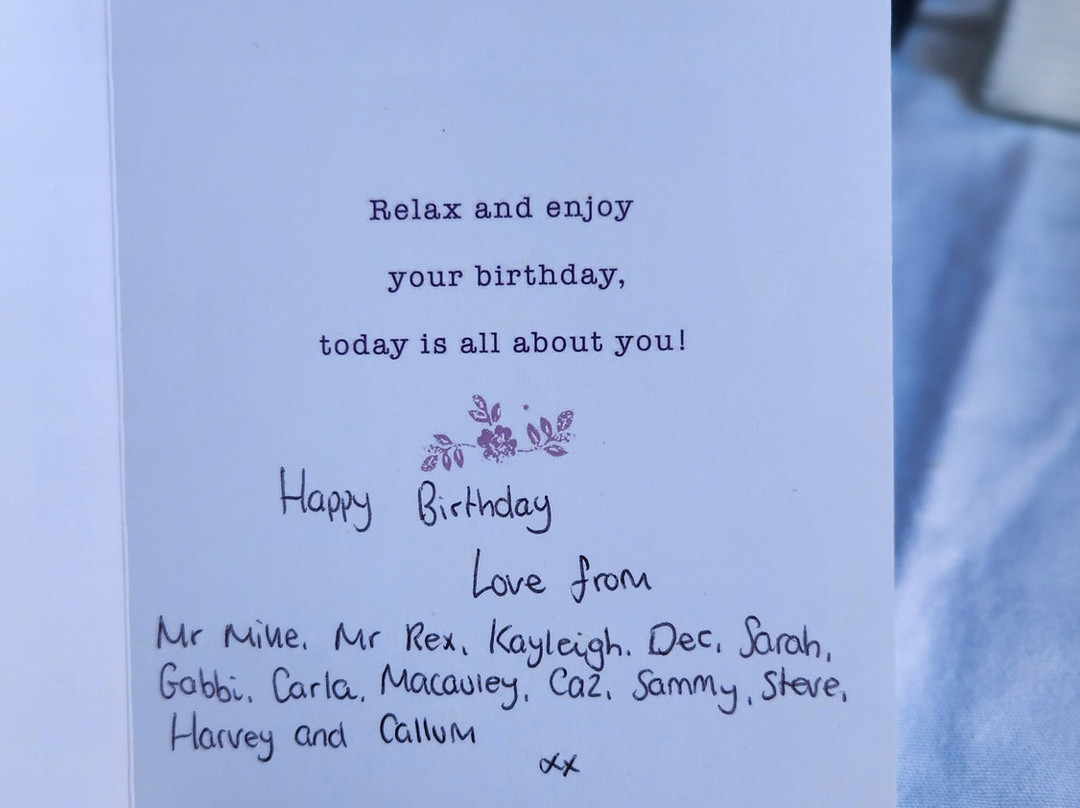 Relax and enjoy
your birthday,
today is all about you!
Happy Birthday
Love from
Mr Mike, Mr Rex, Kayleigh, Dec, Sarah,
Gabbi, Carla, Macauley, Caz, Sammy, Steve,
Harvey and Callum
xx